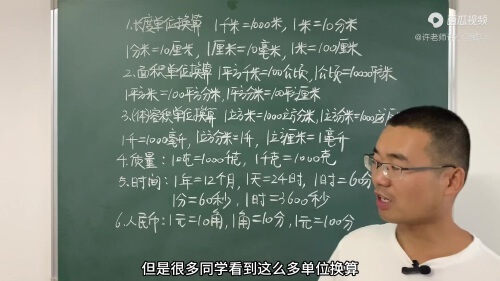 西瓜视频
@许老师
1.长度单位换算 1千米=1000米, 1米=10分米
1分米=10厘米, 1厘米=10毫米, 1米=100厘米
2.面积单位换算 1平方千米=100公顷, 1公顷=10000平方米
1平方米=100平方分米, 1平方分米=100平方厘米
3.体(容)积单位换算 1立方米=1000立方分米, 1立方分米=1000立方厘
1升=1000毫升, 1立方分米=1升, 1立方厘米=1毫升
4.质量: 1吨=1000千克, 1千克=1000克
5.时间: 1年=12个月, 1天=24时, 1时=60分
1分=60秒, 1时=3600秒
6.人民币: 1元=10角, 1角=10分, 1元=100分
但是很多同学看到这么多单位换算